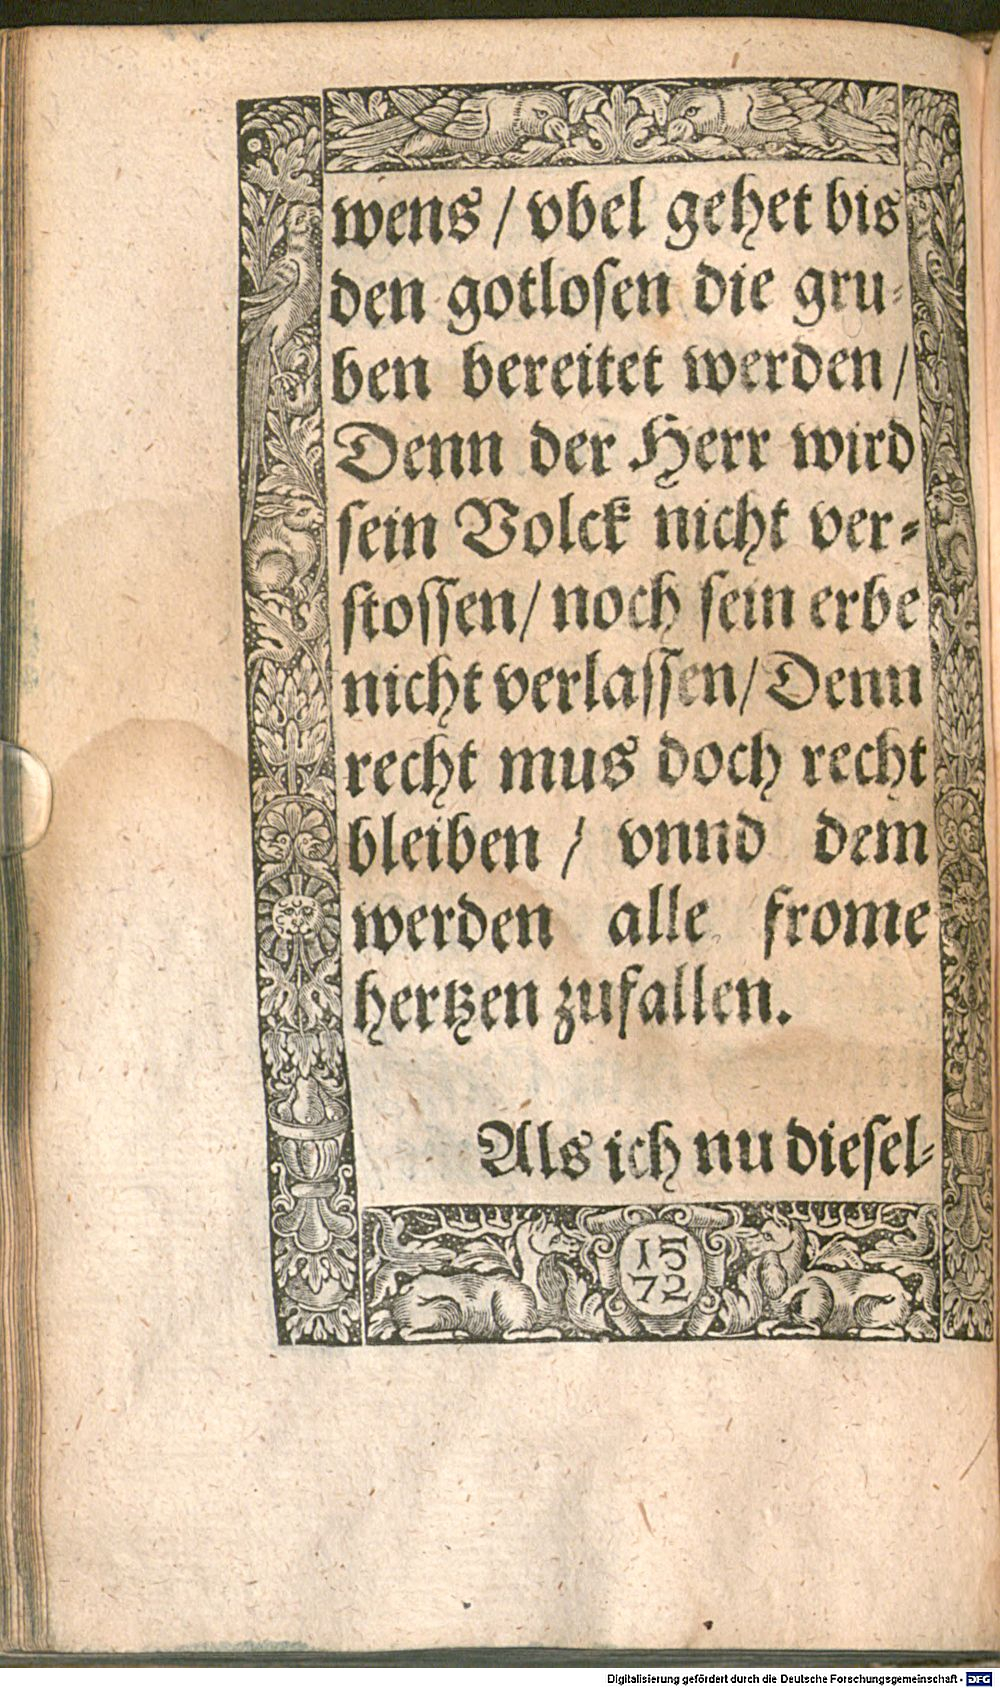 wens / vbel gehet bis
den gotlosen die gru-
ben bereitet werden /
Denn der Herr wird
sein Volck nicht ver-
stossen / noch sein erbe
nicht verlassen / Denn
recht mus doch recht
bleiben / vnnd dem
werden alle frome
hertzen zufallen.
Als ich nu diesel-
15
72
Digitalisierung gefördert durch die Deutsche Forschungsgemeinschaft - DFG